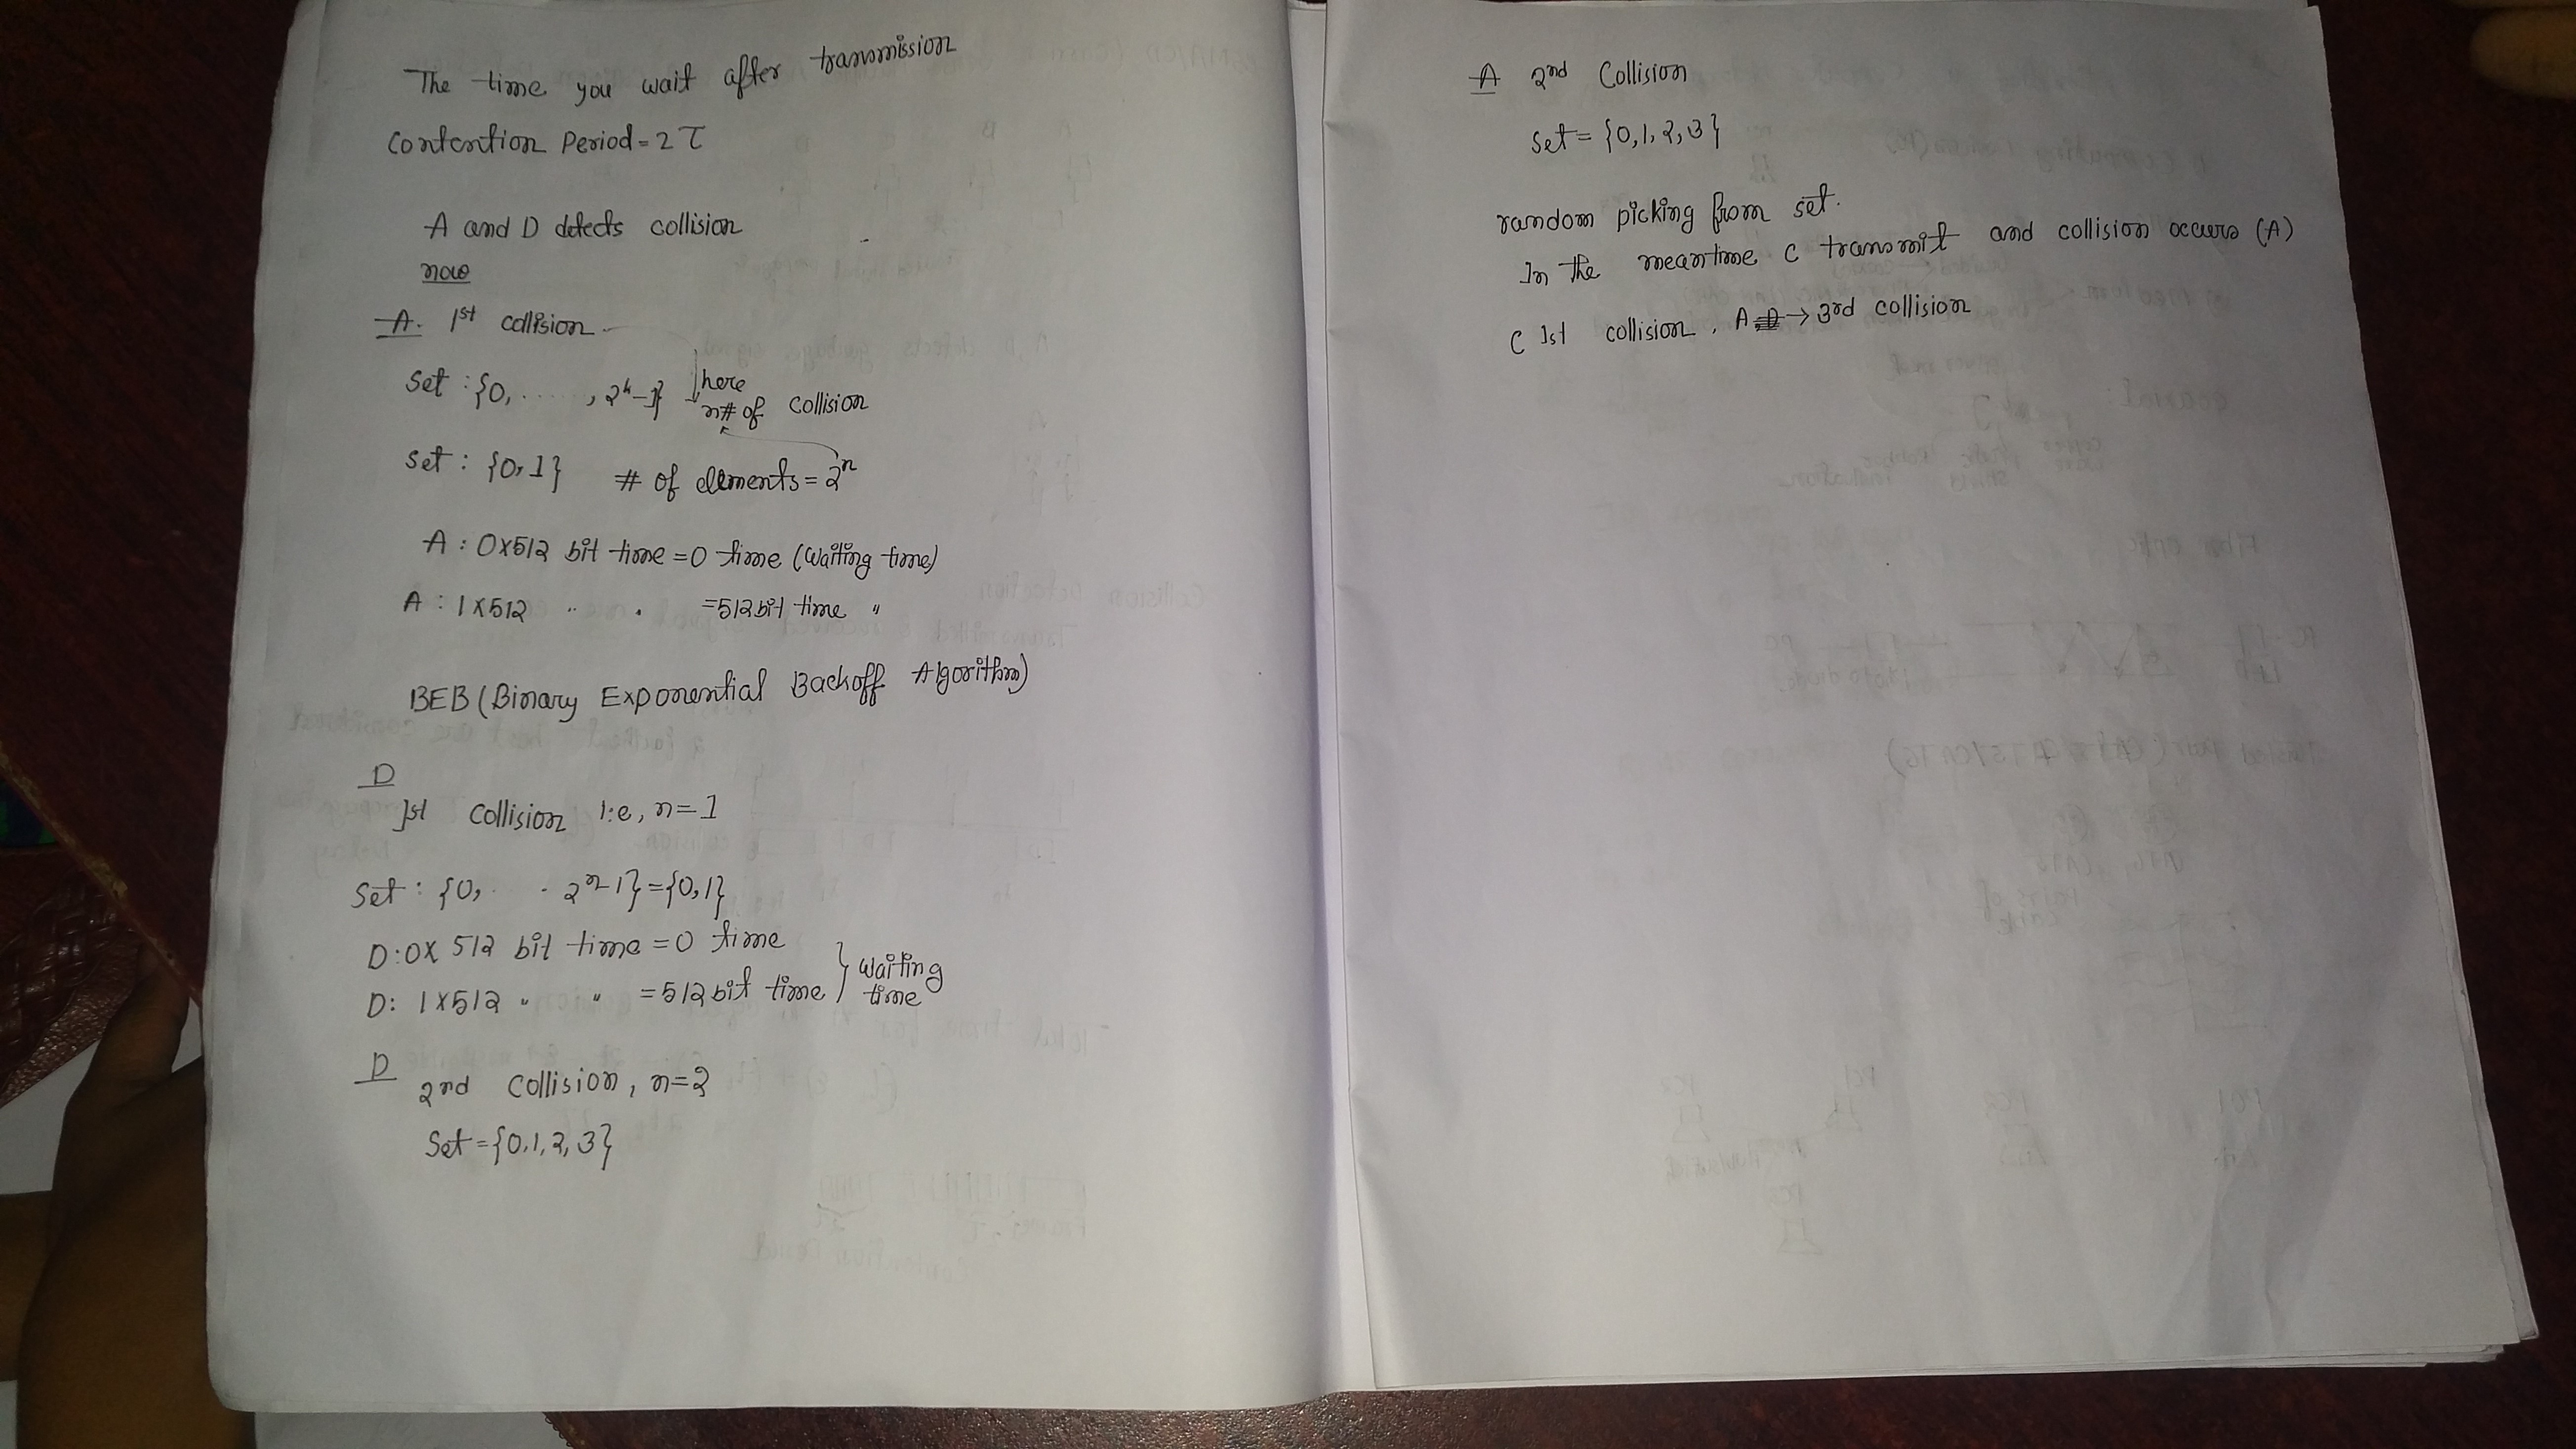 The time you wait after transmission
Contention Period = 2τ
A and D detects collision
now
A. 1st collision
Set : {0, ....., 2ⁿ-1} here
n# of collision
Set : {0, 1} # of elements = 2ⁿ
A : 0x512 bit time = 0 time (Waiting time)
A : 1x512 " " = 512 bit time "
BEB (Binary Exponential Backoff Algorithm)
D
1st Collision i.e, n=1
Set : {0, . . 2ⁿ-1} = {0,1}
D:0x 512 bit time = 0 time
D: 1x512 " " = 512 bit time } Waiting time
D
2nd Collision, n=2
Set = {0,1,2,3}
A 2nd Collision
Set = {0,1,2,3}
random picking from set.
In the meantime C transmit and collision occurs (A)
C 1st collision, A → 3rd collision